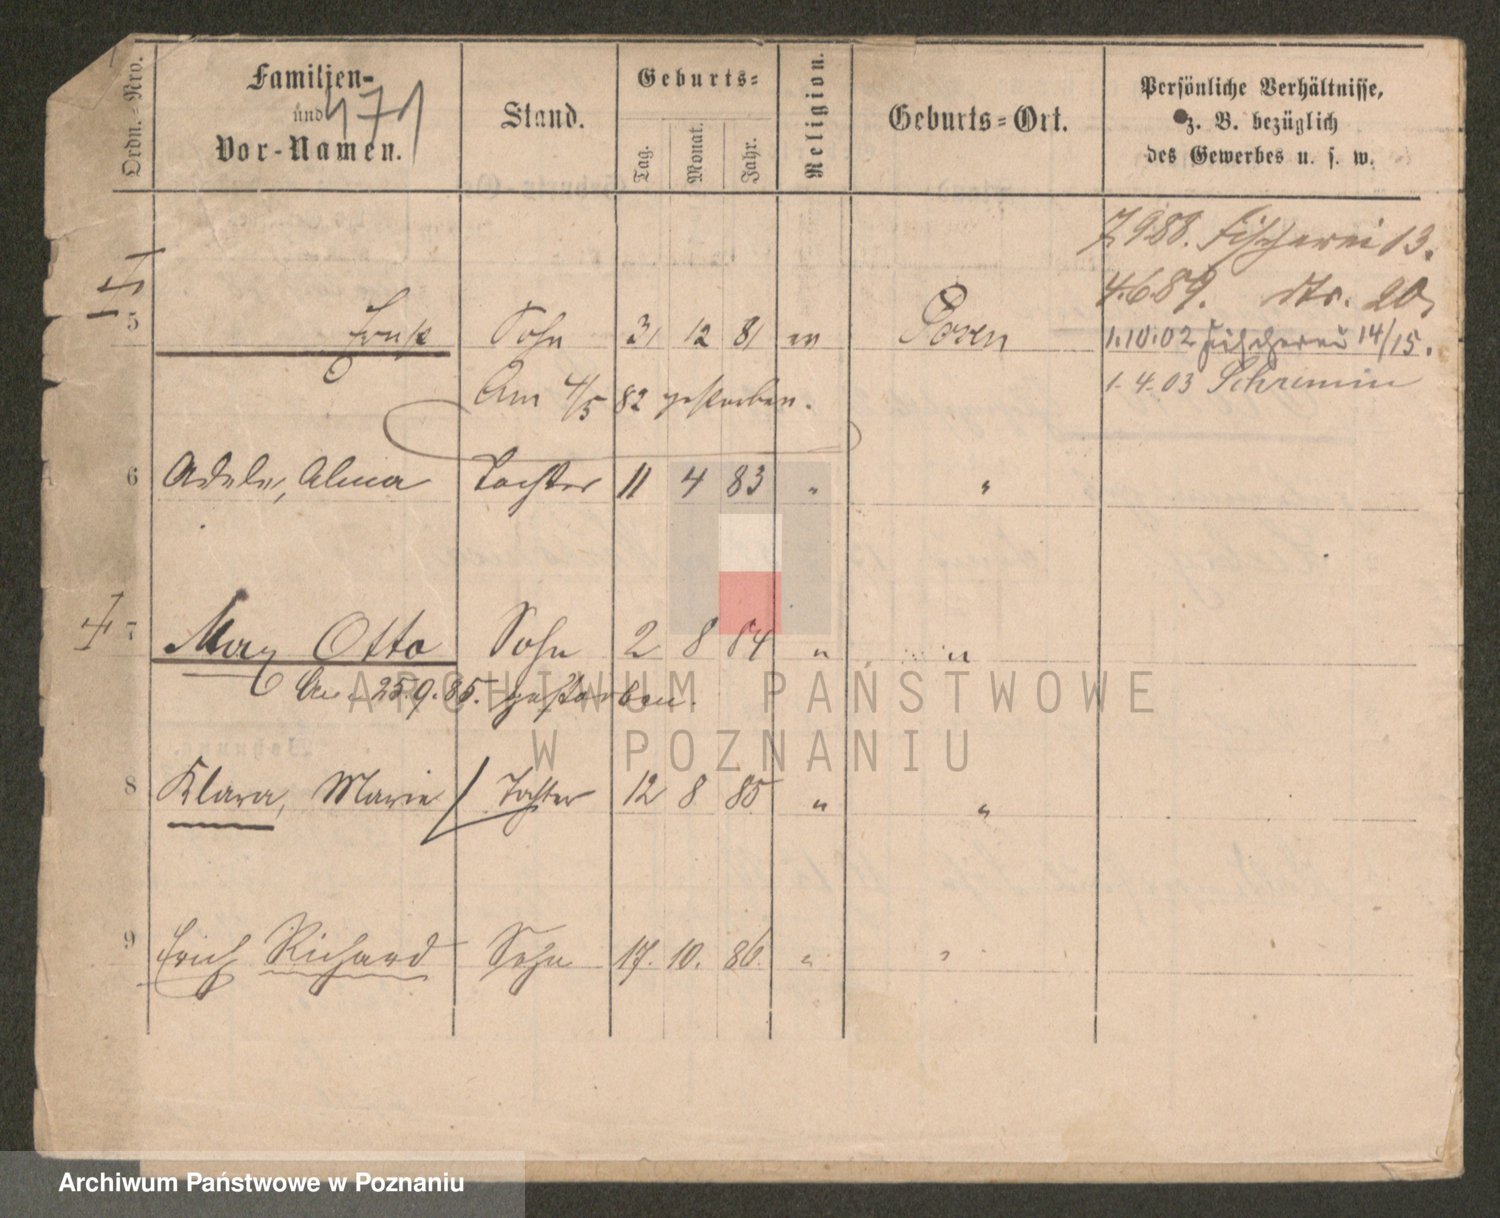 Ordn.-Nro.
Familien-
und
Vor-Namen.
471
Stand.
Geburts-
Tag.
Monat.
Jahr.
Religion.
Geburts-Ort.
Persönliche Verhältnisse,
z. B. bezüglich
des Gewerbes u. s. w.
7988. Fischerei 13.
4.689. dto. 20,
5 Ernst Sohn 31 12 81 Posen
1.10.02 Fischerei 14/15.
1.4.03 Schrimm
Am 4/5 82 gestorben.
6 Adele, Alma Tochter 11 4 83 " "
7 Max Otto Sohn 2 8 84 " "
Am 25.9.85. gestorben.
8 Klara, Marie Tochter 12 8 85 " "
9 Erich Richard Sohn 17. 10. 86. " "
ARCHIWUM PAŃSTWOWE
W POZNANIU
Archiwum Państwowe w Poznaniu